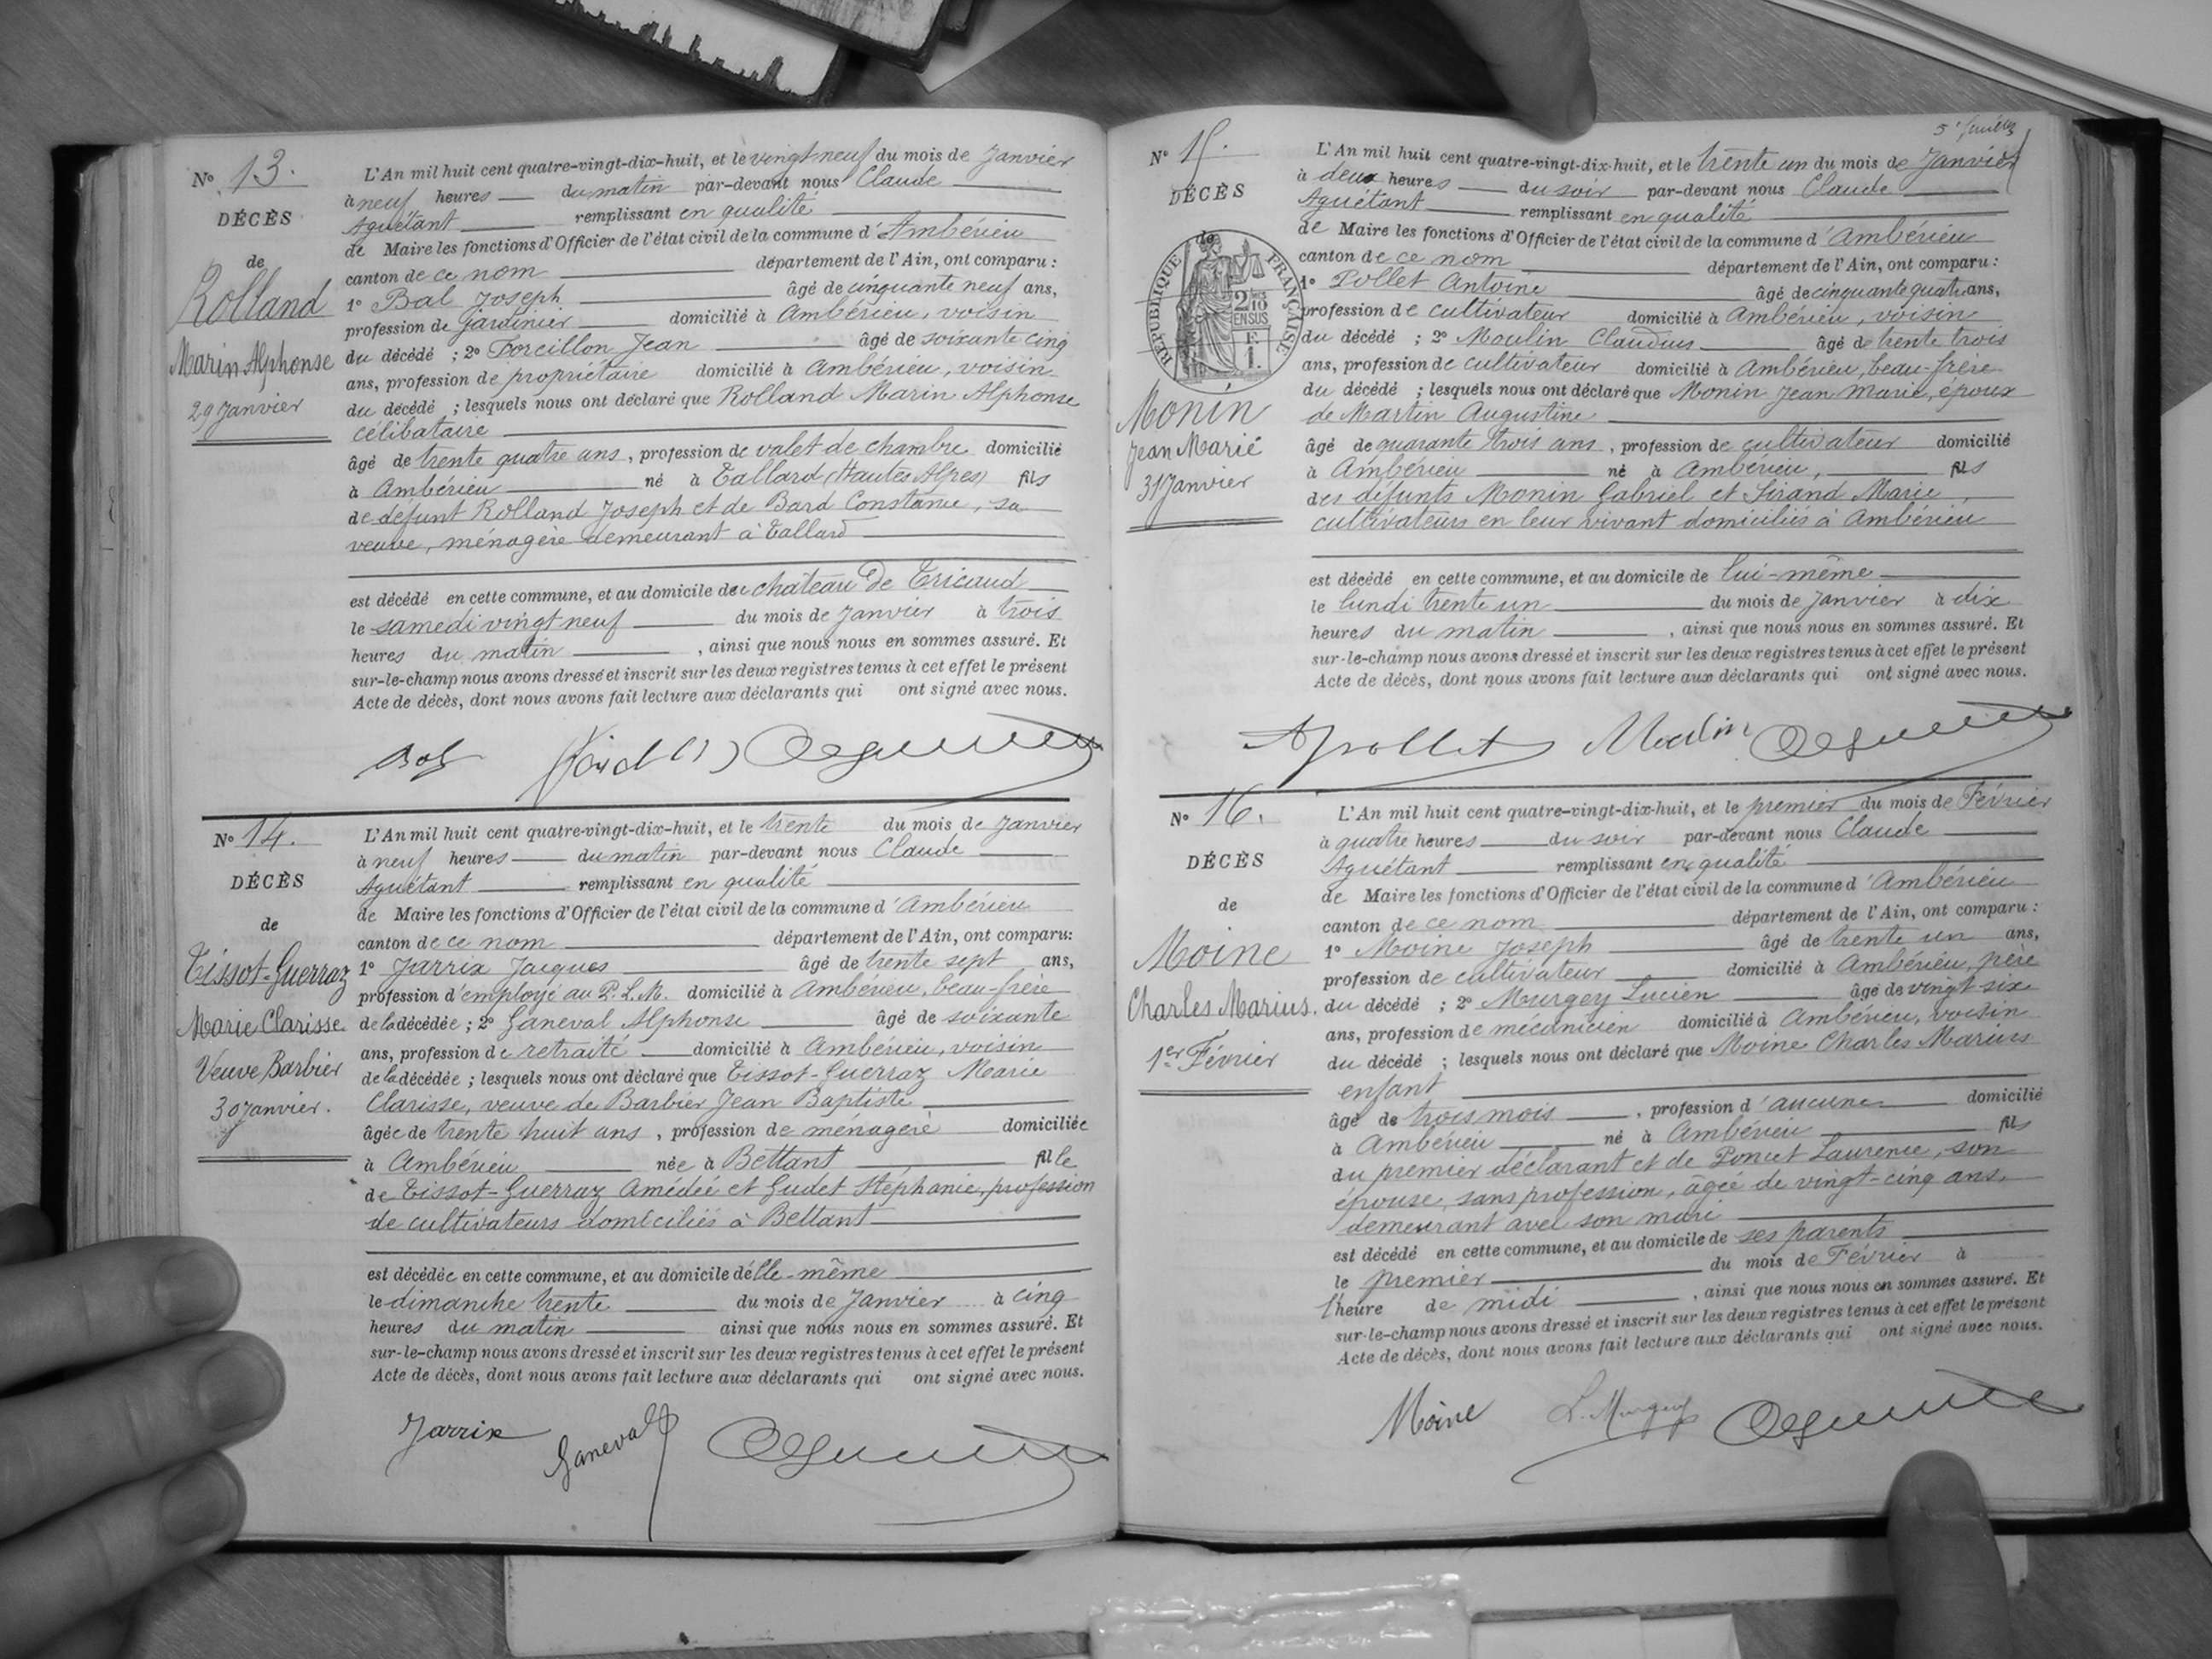 No 13.
DÉCÈS
de
Rolland
Marin Alphonse
29 Janvier
L'An mil huit cent quatre-vingt-dix-huit, et le vingt neuf du mois de Janvier
à neuf heures du matin par-devant nous Claude
Aguétant remplissant en qualité
de Maire les fonctions d'Officier de l'état civil de la commune d'Ambérieu
canton de ce nom département de l'Ain, ont comparu :
1o Bal Joseph âgé de cinquante neuf ans,
profession de Jardinier domicilié à Ambérieu, voisin
du décédé ; 2o Forcillon Jean âgé de soixante cinq
ans, profession de propriétaire domicilié à Ambérieu, voisin
du décédé ; lesquels nous ont déclaré que Rolland Marin Alphonse
célibataire
âgé de trente quatre ans, profession de valet de chambre domicilié
à Ambérieu né à Tallard (Hautes Alpes) fils
de défunt Rolland Joseph et de Bard Constance, sa
veuve, ménagère demeurant à Tallard
est décédé en cette commune, et au domicile du château de Tricaud
le samedi vingt neuf du mois de Janvier à trois
heures du matin , ainsi que nous nous en sommes assuré. Et
sur-le-champ nous avons dressé et inscrit sur les deux registres tenus à cet effet le présent
Acte de décès, dont nous avons fait lecture aux déclarants qui ont signé avec nous.
No 14.
DÉCÈS
de
Tissot-Guerraz
Marie Clarisse
Veuve Barbier
30 Janvier.
L'An mil huit cent quatre-vingt-dix-huit, et le trente du mois de Janvier
à neuf heures du matin par-devant nous Claude
Aguétant remplissant en qualité
de Maire les fonctions d'Officier de l'état civil de la commune d'Ambérieu
canton de ce nom département de l'Ain, ont comparu:
1o Jarrix Jacques âgé de trente sept ans,
profession d'employé au P.L.M. domicilié à Ambérieu, beau-frère
de la décédée ; 2o Ganeval Alphonse âgé de soixante
ans, profession de retraité domicilié à Ambérieu, voisin
de la décédée ; lesquels nous ont déclaré que Tissot-Guerraz Marie
Clarisse, veuve de Barbier Jean Baptiste
âgée de trente huit ans , profession de ménagère domiciliée
à Ambérieu née à Bettant fille
de Tissot-Guerraz Amédée et Gudet Stéphanie, profession
de cultivateurs domiciliés à Bettant
est décédée en cette commune, et au domicile d'elle-même
le dimanche trente du mois de Janvier à cinq
heures du matin ainsi que nous nous en sommes assuré. Et
sur-le-champ nous avons dressé et inscrit sur les deux registres tenus à cet effet le présent
Acte de décès, dont nous avons fait lecture aux déclarants qui ont signé avec nous.
Jarrix Ganeval
No 15.
DÉCÈS
de
RÉPUBLIQUE FRANÇAISE
2/10 EN SUS
F. 1.
Monin
Jean Marie
31 Janvier
L'An mil huit cent quatre-vingt-dix-huit, et le trente un du mois de Janvier
à deux heures du soir par-devant nous Claude
Aguétant remplissant en qualité
de Maire les fonctions d'Officier de l'état civil de la commune d'Ambérieu
canton de ce nom département de l'Ain, ont comparu :
1o Pollet Antoine âgé de cinquante quatre ans,
profession de cultivateur domicilié à Ambérieu, voisin
du décédé ; 2o Moulin Claudius âgé de trente trois
ans, profession de cultivateur domicilié à Ambérieu, beau-frère
du décédé ; lesquels nous ont déclaré que Monin Jean Marie, époux
de Martin Augustine
âgé de quarante trois ans , profession de cultivateur domicilié
à Ambérieu né à Ambérieu, fils
des défunts Monin Gabriel et Sirand Marie,
cultivateurs en leur vivant domiciliés à Ambérieu
est décédé en cette commune, et au domicile de lui-même
le lundi trente un du mois de Janvier à dix
heures du matin , ainsi que nous nous en sommes assuré. Et
sur-le-champ nous avons dressé et inscrit sur les deux registres tenus à cet effet le présent
Acte de décès, dont nous avons fait lecture aux déclarants qui ont signé avec nous.
Apollet Moulin
No 16.
DÉCÈS
de
Moine
Charles Marius.
1er Février
L'An mil huit cent quatre-vingt-dix-huit, et le premier du mois de Février
à quatre heures du soir par-devant nous Claude
Aguétant remplissant en qualité
de Maire les fonctions d'Officier de l'état civil de la commune d'Ambérieu
canton de ce nom département de l'Ain, ont comparu :
1o Moine Joseph âgé de trente un ans,
profession de cultivateur domicilié à Ambérieu, père
du décédé ; 2o Murgey Lucien âgé de vingt-six
ans, profession de mécanicien domicilié à Ambérieu, voisin
du décédé ; lesquels nous ont déclaré que Moine Charles Marius
enfant
âgé de trois mois , profession d'aucune domicilié
à Ambérieu né à Ambérieu fils
du premier déclarant et de Poncet Laurence, son
épouse, sans profession, âgée de vingt-cinq ans,
demeurant avec son mari
est décédé en cette commune, et au domicile de ses parents
le premier du mois de Février à
l'heure de midi , ainsi que nous nous en sommes assuré. Et
sur-le-champ nous avons dressé et inscrit sur les deux registres tenus à cet effet le présent
Acte de décès, dont nous avons fait lecture aux déclarants qui ont signé avec nous.
Moine L. Murgey